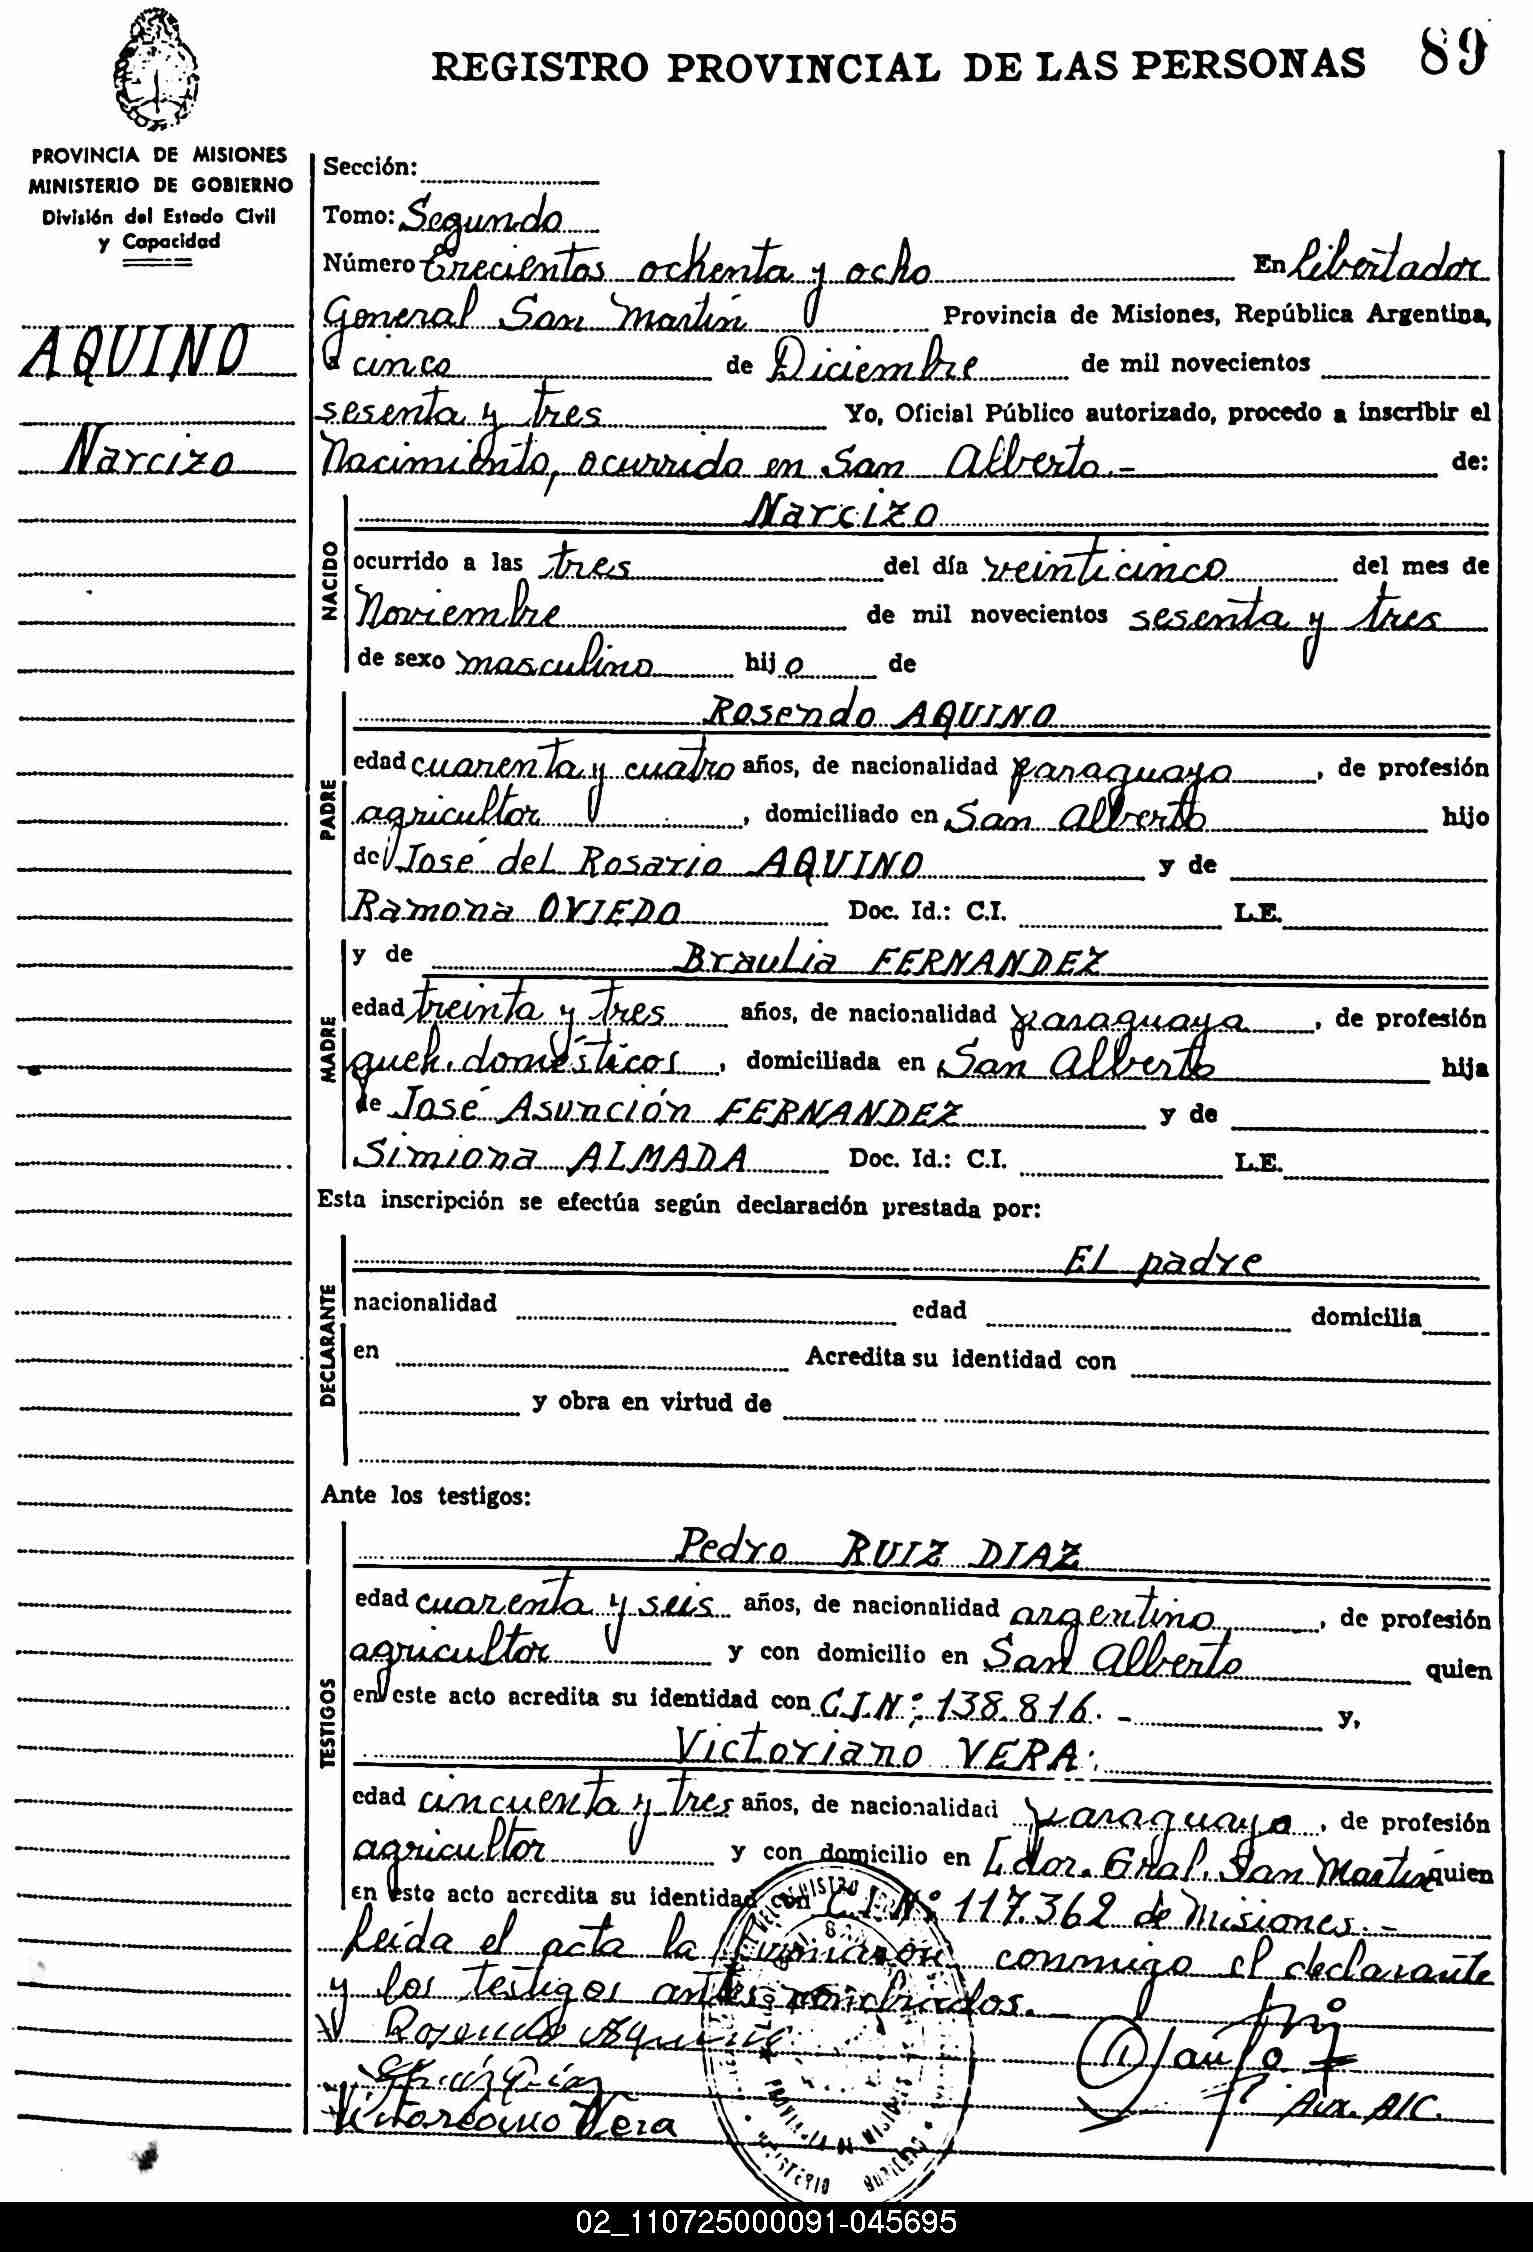 REGISTRO PROVINCIAL DE LAS PERSONAS 89
PROVINCIA DE MISIONES
MINISTERIO DE GOBIERNO
División del Estado Civil
y Capacidad
AQUINO
Narcizo
Sección:
Tomo: Segundo
Número Trecientos ochenta y ocho En Libertador
General San Martín Provincia de Misiones, República Argentina,
a cinco de Diciembre de mil novecientos
sesenta y tres Yo, Oficial Público autorizado, procedo a inscribir el
Nacimiento, ocurrido en San Alberto.- de:
NACIDO
Narcizo
ocurrido a las tres del día veinticinco del mes de
Noviembre de mil novecientos sesenta y tres
de sexo masculino hijo de
PADRE
Rosendo AQUINO
edad cuarenta y cuatro años, de nacionalidad paraguayo, de profesión
agricultor, domiciliado en San Alberto hijo
de José del Rosario AQUINO y de
Ramona OVIEDO Doc. Id.: C.I. L.E.
MADRE
y de Braulia FERNANDEZ
edad treinta y tres años, de nacionalidad paraguaya, de profesión
queh. domésticos, domiciliada en San Alberto hija
de José Asunción FERNANDEZ y de
Simiona ALMADA Doc. Id.: C.I. L.E.
Esta inscripción se efectúa según declaración prestada por:
DECLARANTE
El padre
nacionalidad edad domicilia
en Acredita su identidad con
y obra en virtud de
Ante los testigos:
TESTIGOS
Pedro RUIZ DIAZ
edad cuarenta y seis años, de nacionalidad argentino, de profesión
agricultor y con domicilio en San Alberto quien
en este acto acredita su identidad con C.I.Nº: 138.816.- y,
Victoriano VERA.
edad cincuenta y tres años, de nacionalidad paraguayo, de profesión
agricultor y con domicilio en Ldor. Gral. San Martín quien
en este acto acredita su identidad con C.I.Nº 117.362 de Misiones.-
Leída el acta la firmaron conmigo el declarante
y los testigos antes nombrados.
Rosendo Aquino
Victoreano Vera
Aux. A/C.
02_110725000091-045695